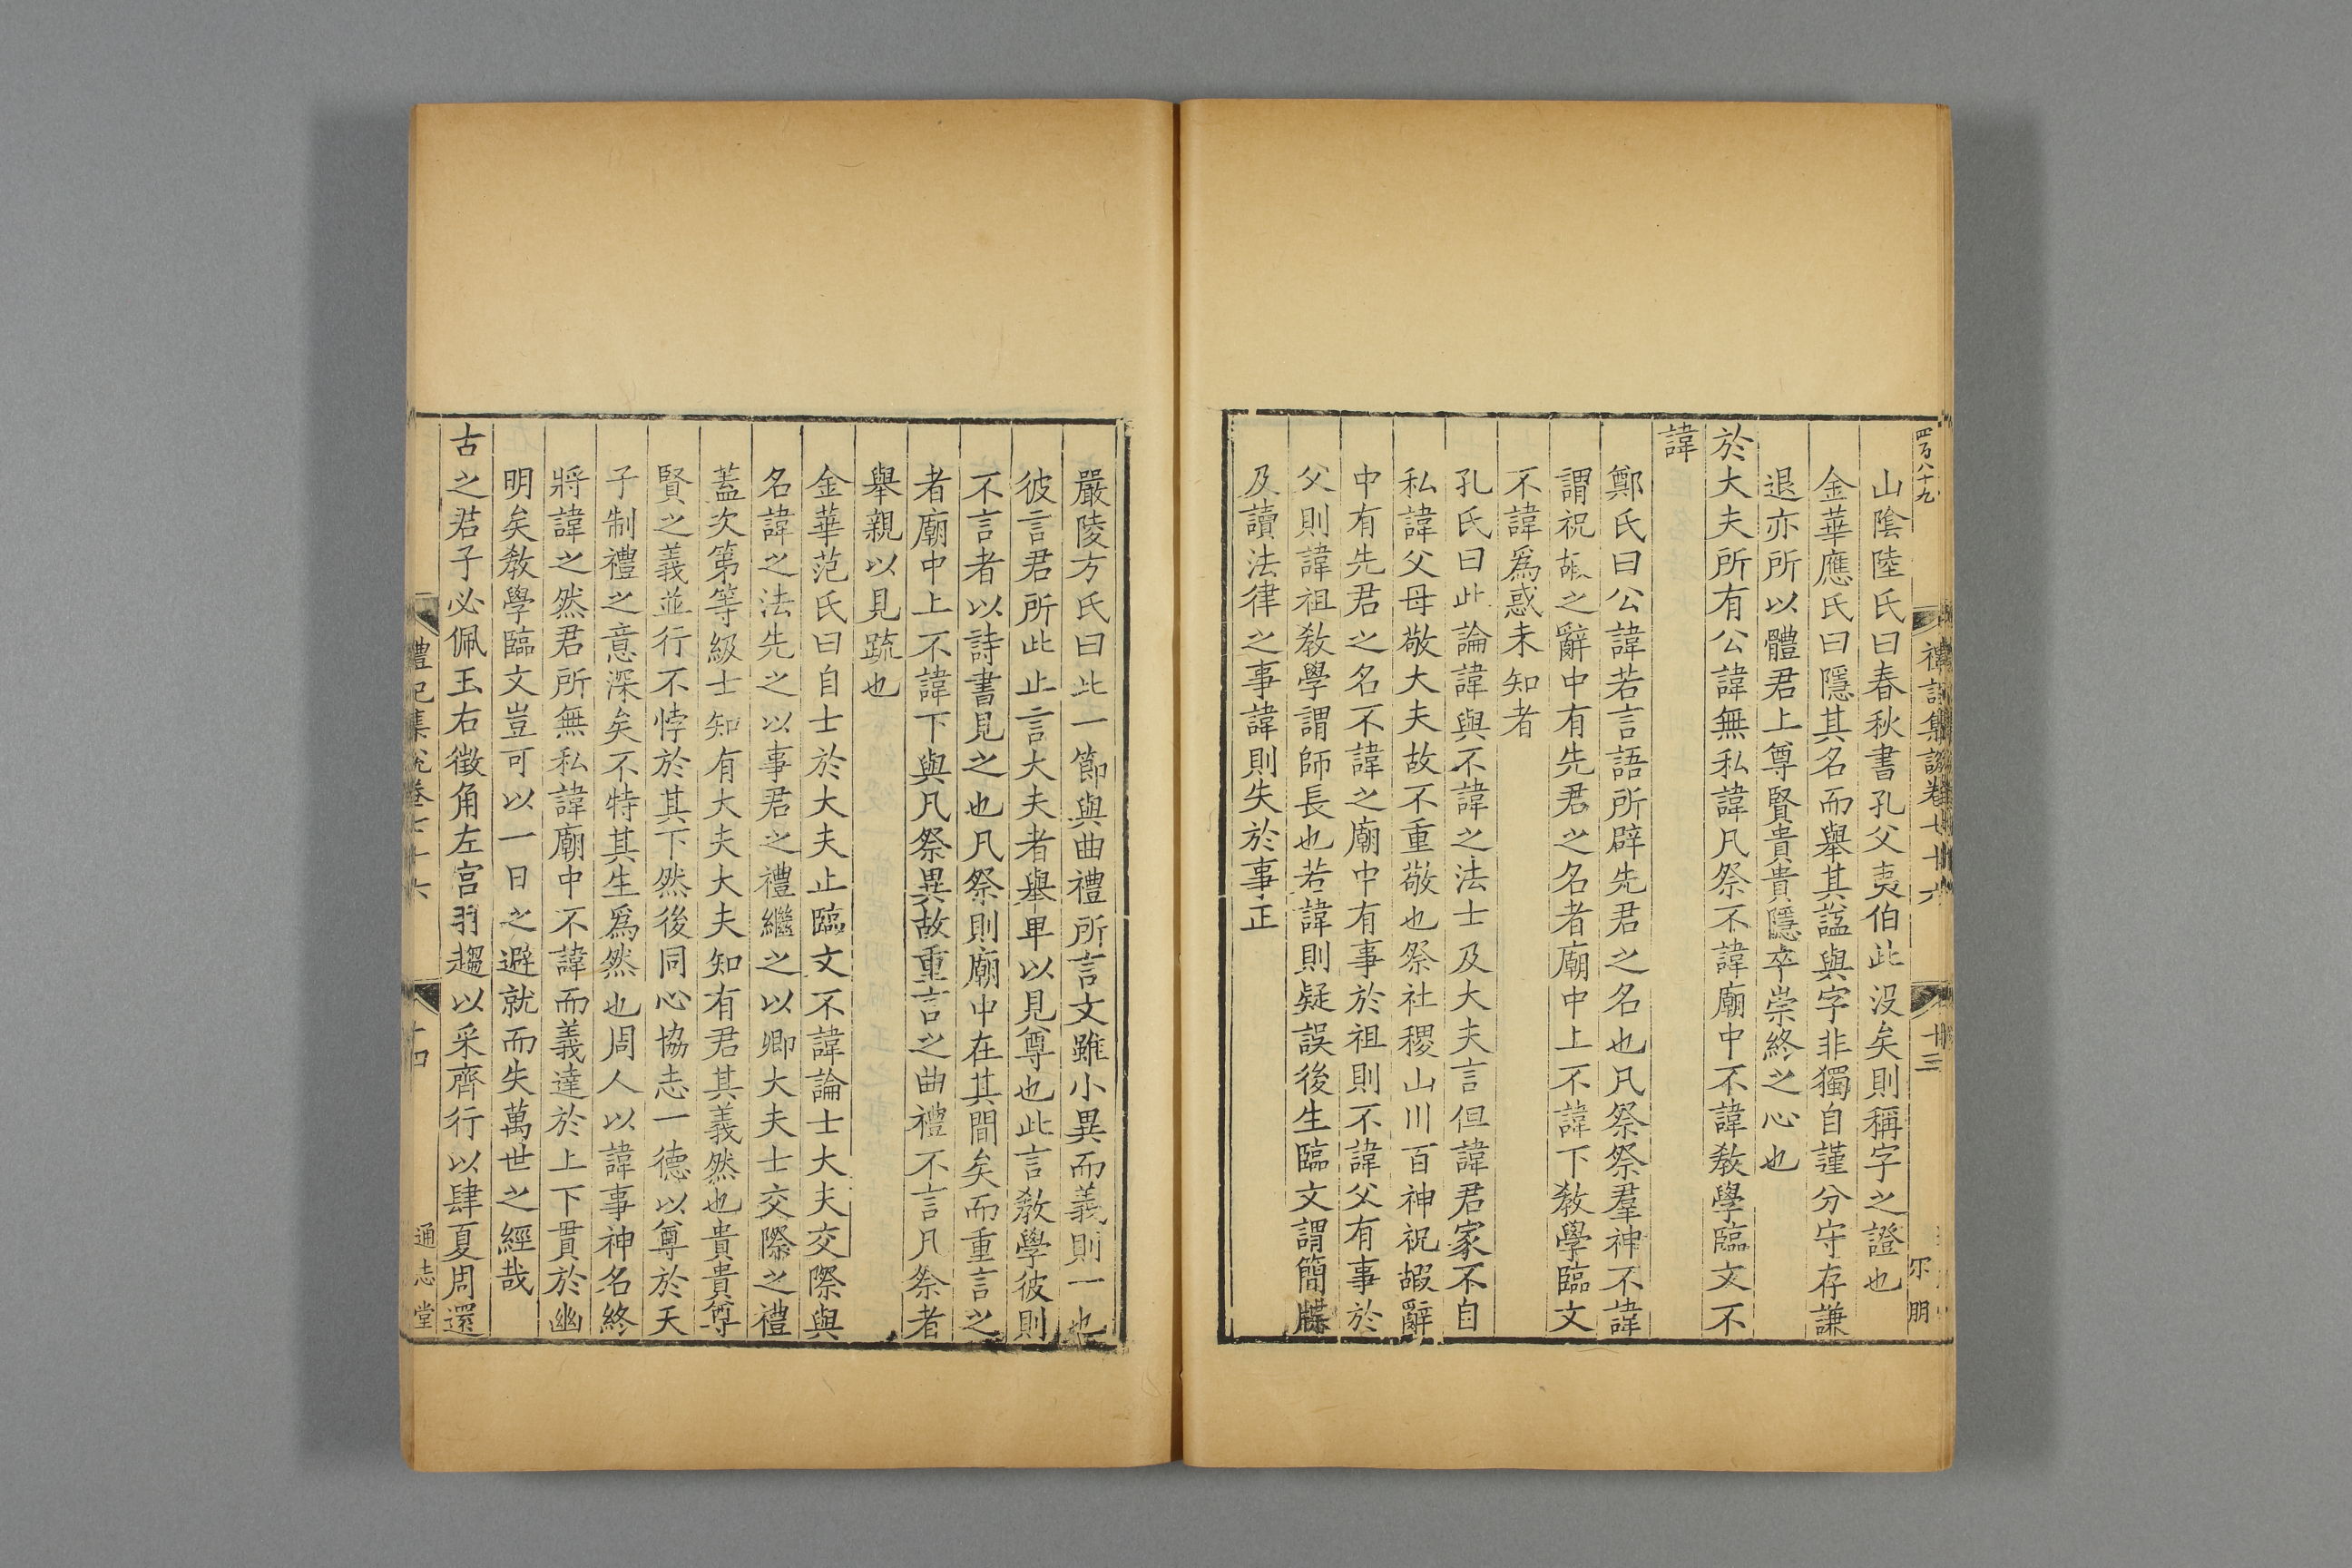 四百八十九
禮記集說卷七十六
十三
山陰陸氏曰春秋書孔父夷伯此沒矣則稱字之證也
金華應氏曰隱其名而舉其諡與字非獨自謹分守存謙
退亦所以體君上尊賢貴貴隱卒崇終之心也
於大夫所有公諱無私諱凡祭不諱廟中不諱敎學臨文不
諱
鄭氏曰公諱若言語所辟先君之名也凡祭祭羣神不諱
謂祝嘏之辭中有先君之名者廟中上不諱下敎學臨文
不諱爲惑未知者
孔氏曰此論諱與不諱之法士及大夫言但諱君家不自
私諱父母敬大夫故不重敬也祭社稷山川百神祝嘏辭
中有先君之名不諱之廟中有事於祖則不諱父有事於
父則諱祖敎學謂師長也若諱則疑誤後生臨文謂簡牒
及讀法律之事諱則失於事正
嚴陵方氏曰此一節與曲禮所言文雖小異而義則一也
彼言君所此止言大夫者舉卑以見尊也此言敎學彼則
不言者以詩書見之也凡祭則廟中在其間矣而重言之
者廟中上不諱下與凡祭異故重言之曲禮不言凡祭者
舉親以見疏也
金華范氏曰自士於大夫止臨文不諱論士大夫交際與
名諱之法先之以事君之禮繼之以卿大夫士交際之禮
蓋次第等級士知有大夫大夫知有君其義然也貴貴尊
賢之義並行不悖於其下然後同心協志一德以尊於天
子制禮之意深矣不特其生爲然也周人以諱事神名終
將諱之然君所無私諱廟中不諱而義達於上下貫於幽
明矣敎學臨文豈可以一日之避就而失萬世之經哉
古之君子必佩玉右徵角左宮羽趨以采齊行以肆夏周還
禮記集說卷七十六
十四
通志堂